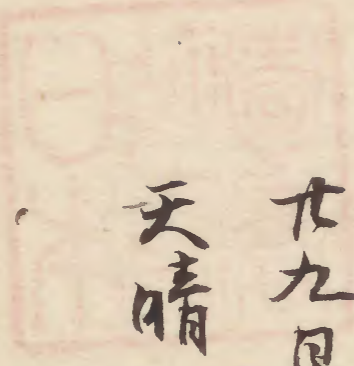 廿九日
天晴